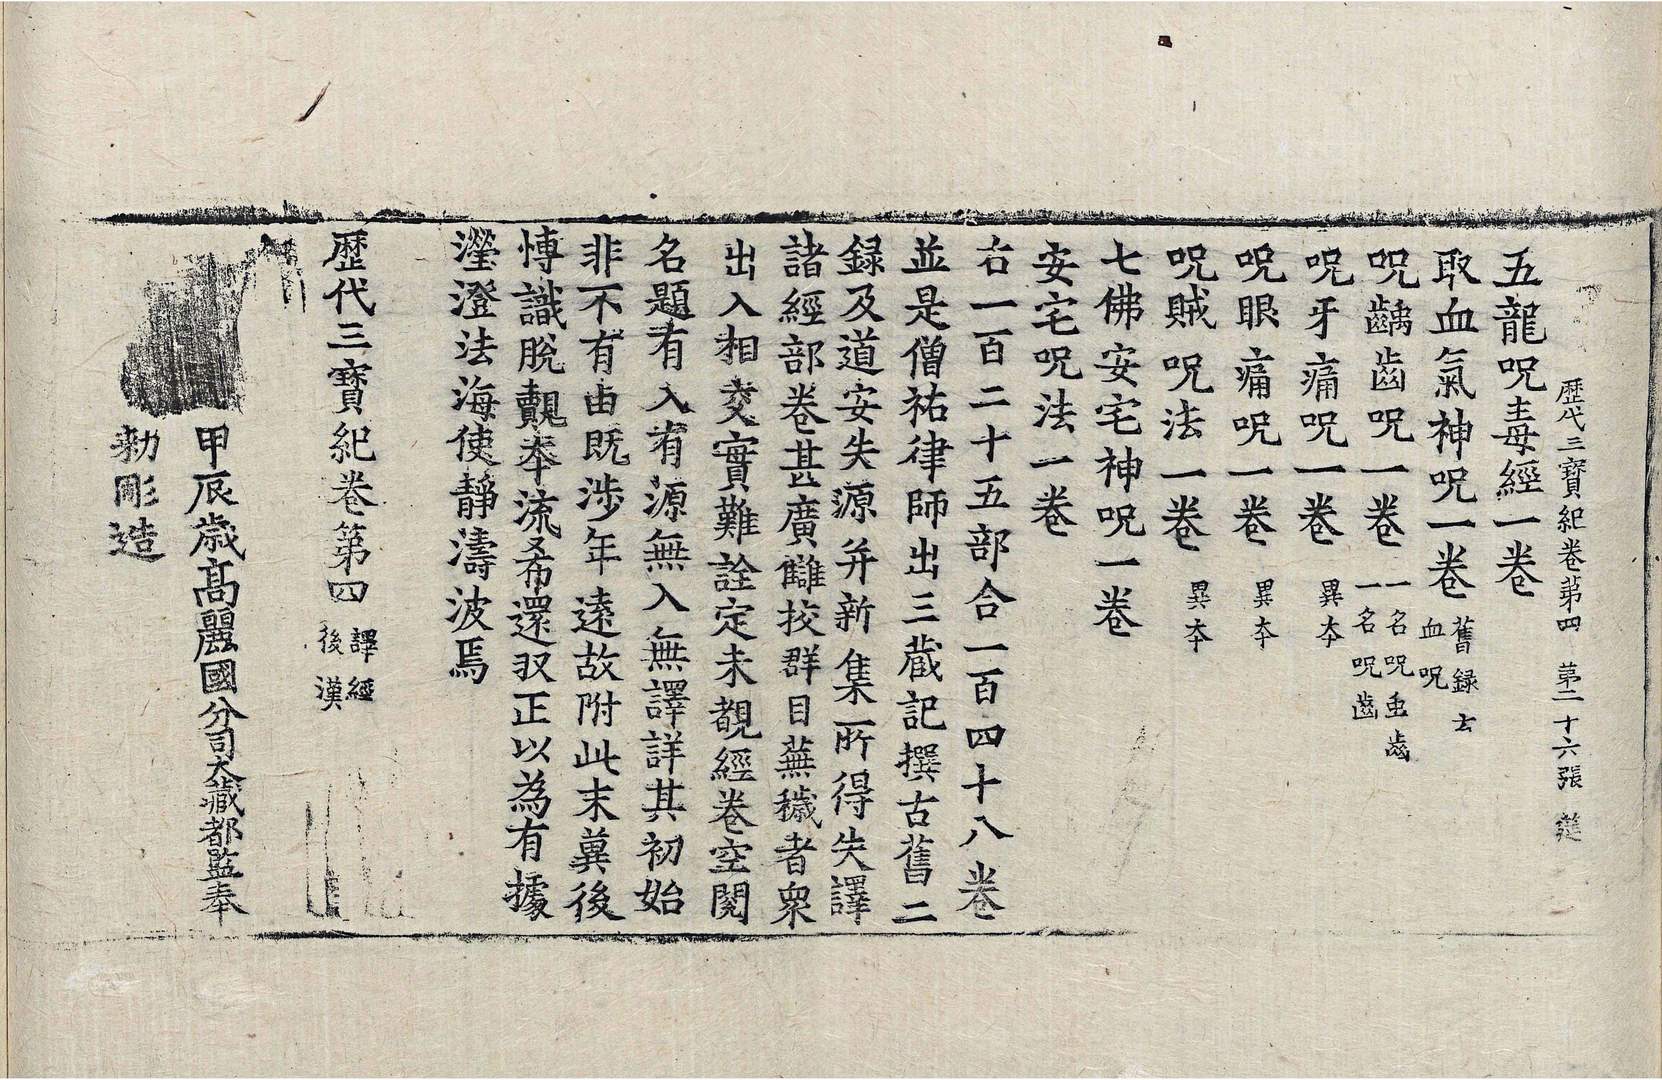 歷代三寶紀卷第四 第二十六張
五龍呪毒經一卷
取血氣神呪一卷 舊録云血呪
呪齲齒呪一卷 一名呪虫齒一名呪齒
呪牙痛呪一卷 異本
呪眼痛呪一卷 異本
呪賊呪法一卷 異本
七佛安宅神呪一卷
安宅呪法一卷
右一百二十五部合一百四十八卷
並是僧祐律師出三藏記撰古舊二
録及道安失源并新集所得失譯
諸經部卷甚廣讎挍群目蕪穢者衆
出入相交實難詮定未覩經卷空閱
名題有入有源無入無譯詳其初始
非不有由既渉年遠故附此末冀後
博識脫覿奉流希還収正以為有據
瀅澄法海使靜濤波焉
歷代三寶紀卷第四 譯經後漢
甲辰歳髙麗國分司大藏都監奉
勅彫造